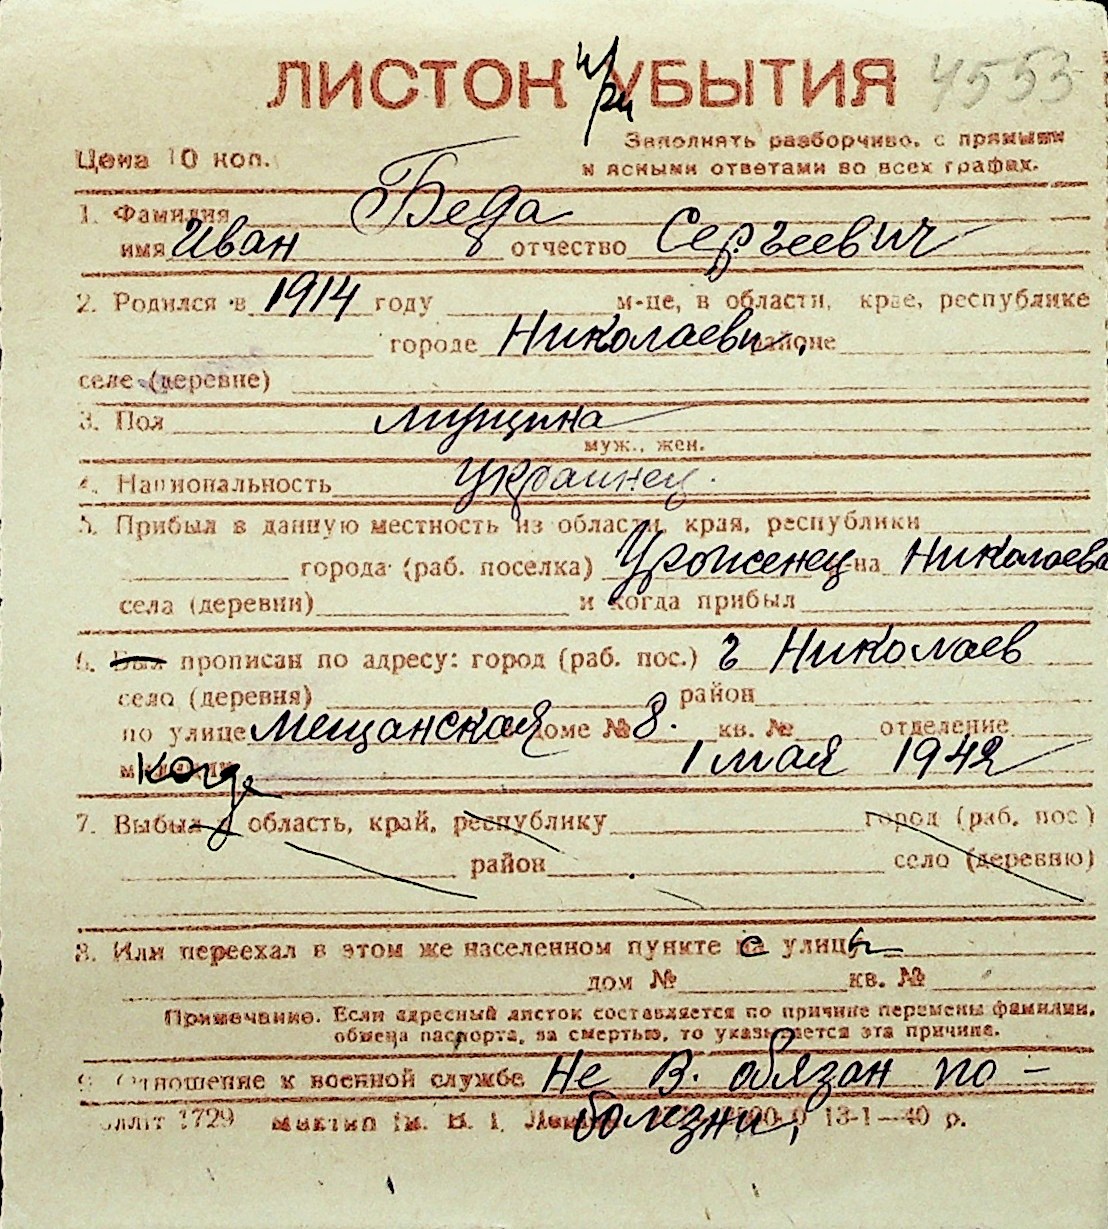 ЛИСТОК УБЫТИЯ
при
4553
Цена 10 коп.
Заполнять разборчиво, с прямыми
и ясными ответами во всех графах.
1. Фамилия Беда
имя Иван отчество Сергеевич
2. Родился в 1914 году м-це, в области, крае, республике
городе Николаеви, районе
селе (деревне)
3. Пол мущина
муж., жен.
4. Национальность Украинец.
5. Прибыл в данную местность из области, края, республики
города (раб. поселка) Уроженец -на Николаева
села (деревни) и когда прибыл
6. Был прописан по адресу: город (раб. пос.) г Николаев
село (деревня) район
по улице Мещанская доме № 8. кв. № отделение
когда 1 мая 1942
7. Выбыл в область, край, республику город (раб. пос)
район село (деревню)
8. Или переехал в этом же населенном пункте с улицы
дом № кв. №
Примечание. Если адресный листок составляется по причине перемены фамилии,
обмена паспорта, за смертью, то указывается эта причина.
9. Отношение к военной службе Не В. обязан по-
болезни,
1729 13-1—40 р.